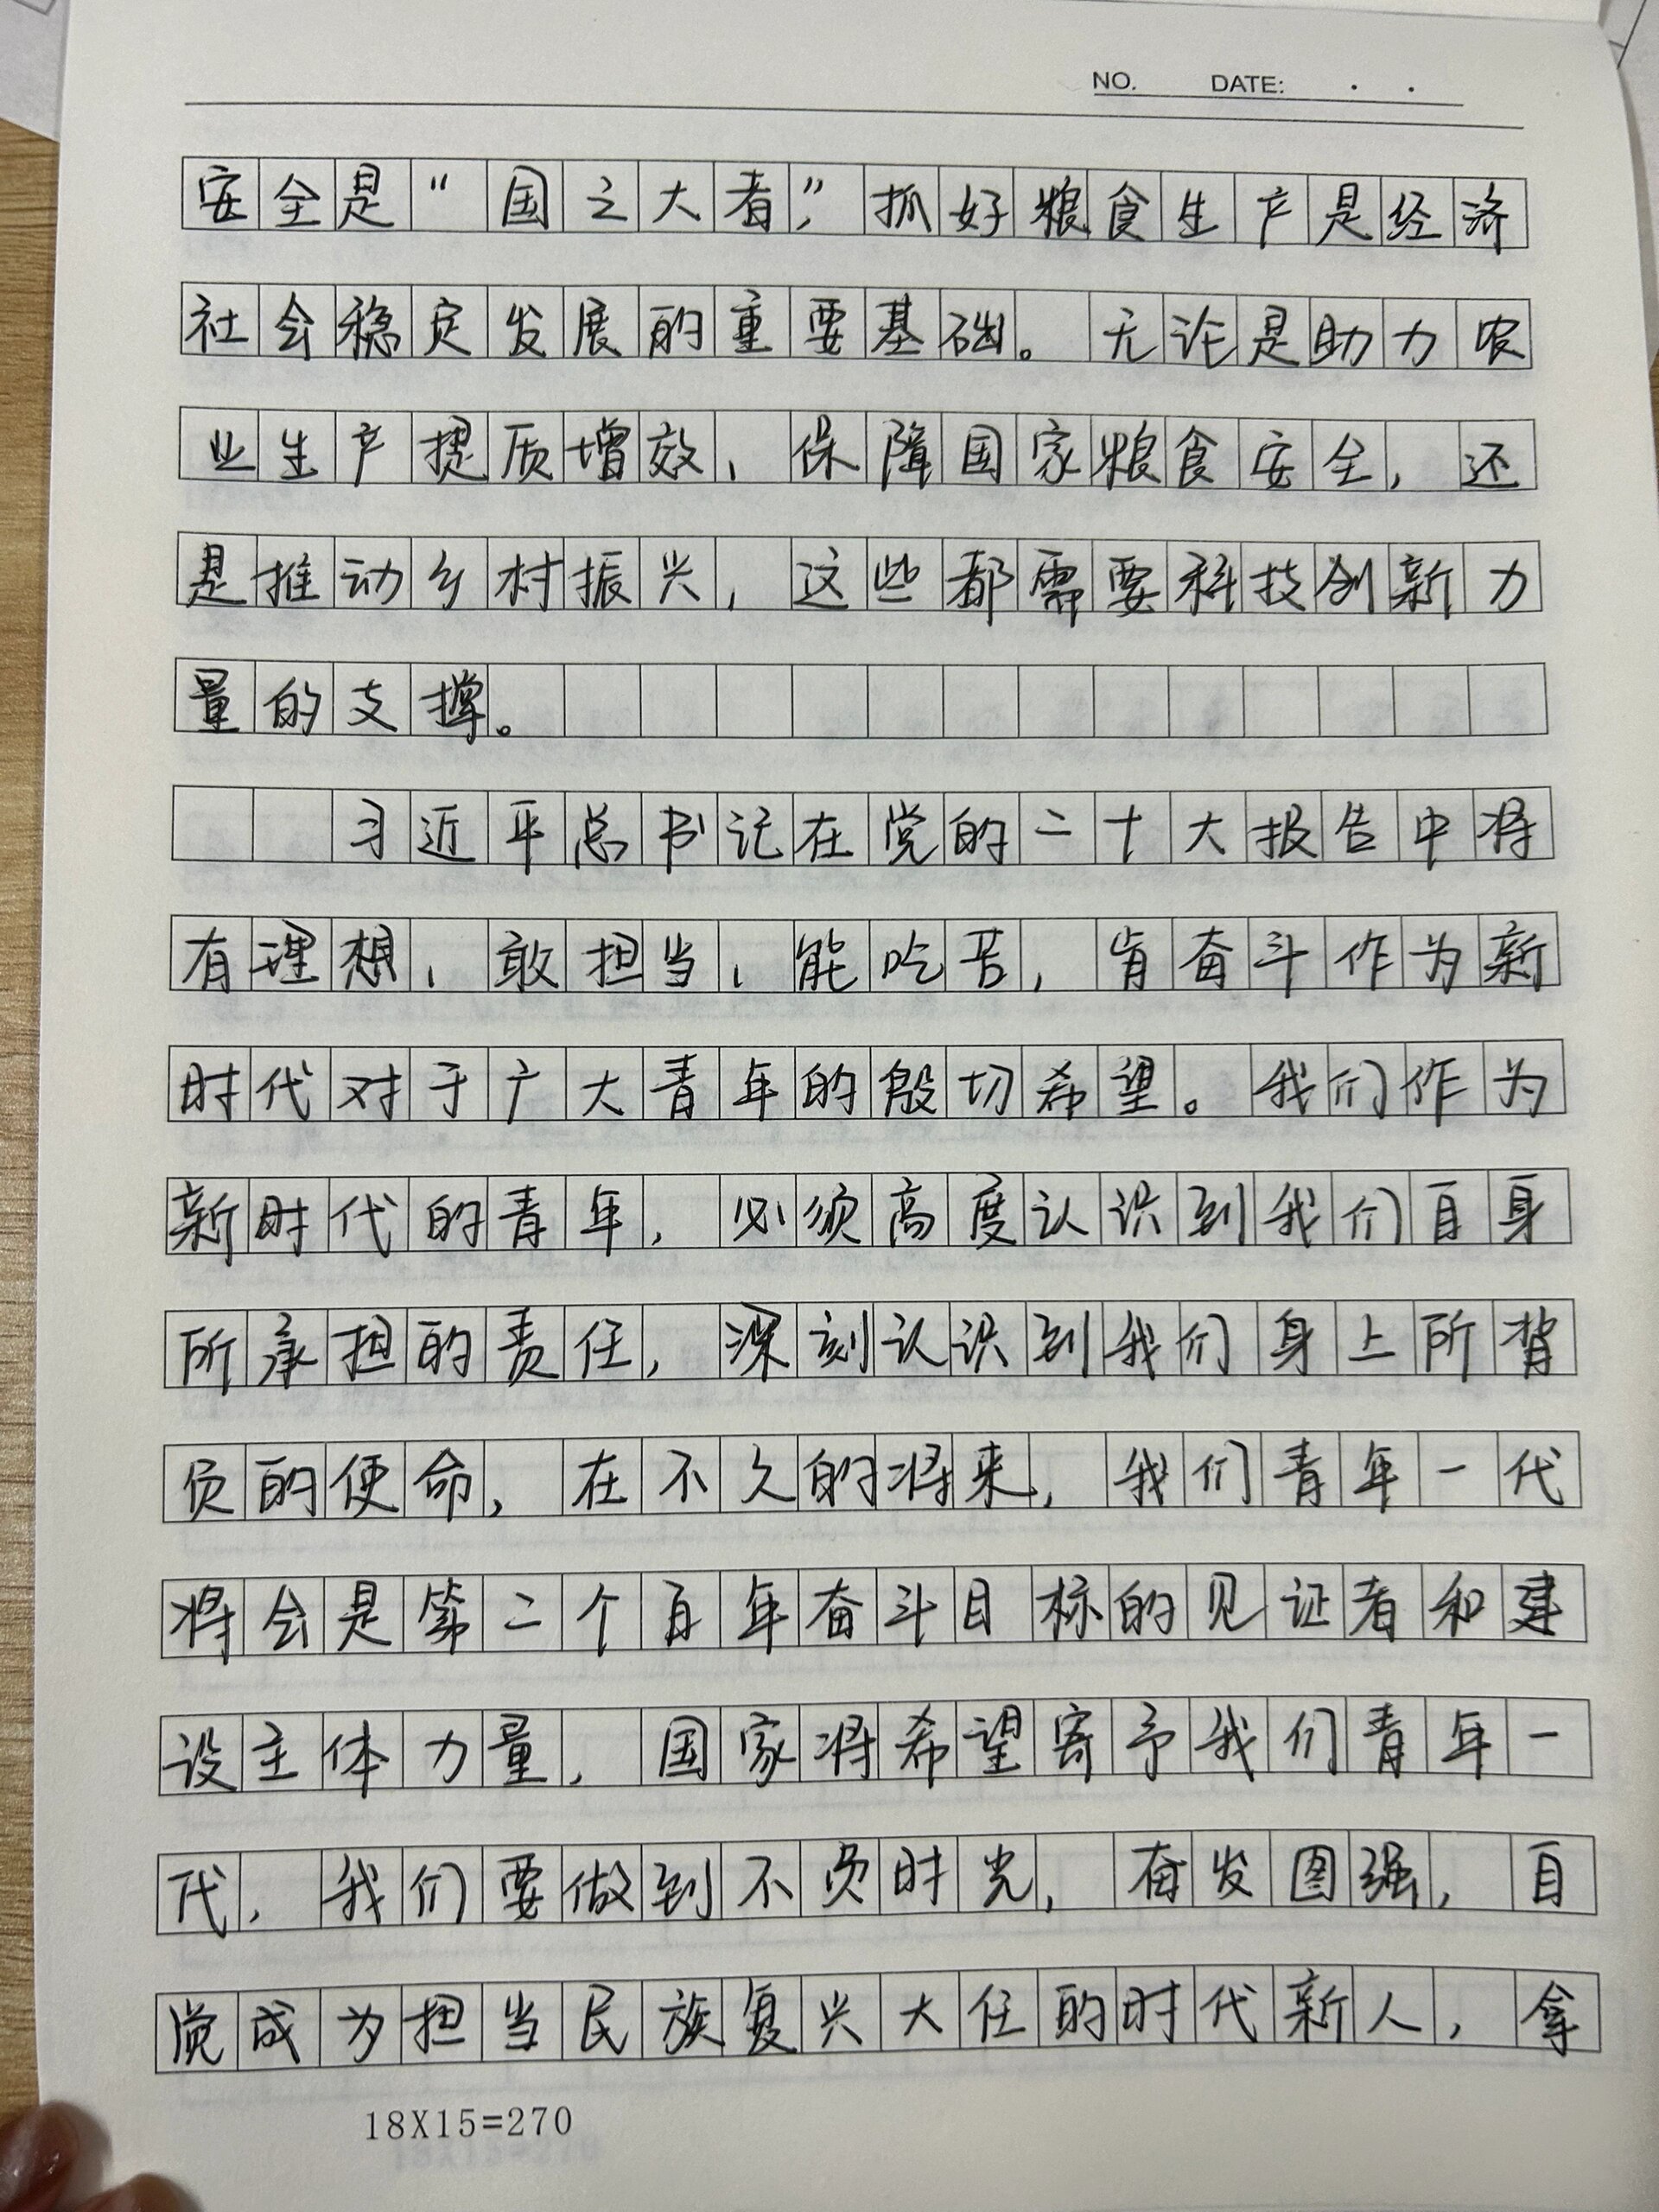 NO. DATE: . .
安全是“国之大者”,抓好粮食生产是经济
社会稳定发展的重要基础。无论是助力农
业生产提质增效、保障国家粮食安全,还
是推动乡村振兴,这些都需要科技创新力
量的支撑。
习近平总书记在党的二十大报告中将
有理想、敢担当、能吃苦,肯奋斗作为新
时代对于广大青年的殷切希望。我们作为
新时代的青年,必须高度认识到我们自身
所承担的责任,深刻认识到我们身上所背
负的使命,在不久的将来,我们青年一代
将会是第二个百年奋斗目标的见证者和建
设主体力量,国家将希望寄予我们青年一
代,我们要做到不负时光,奋发图强,自
觉成为担当民族复兴大任的时代新人,拿
18X15=270